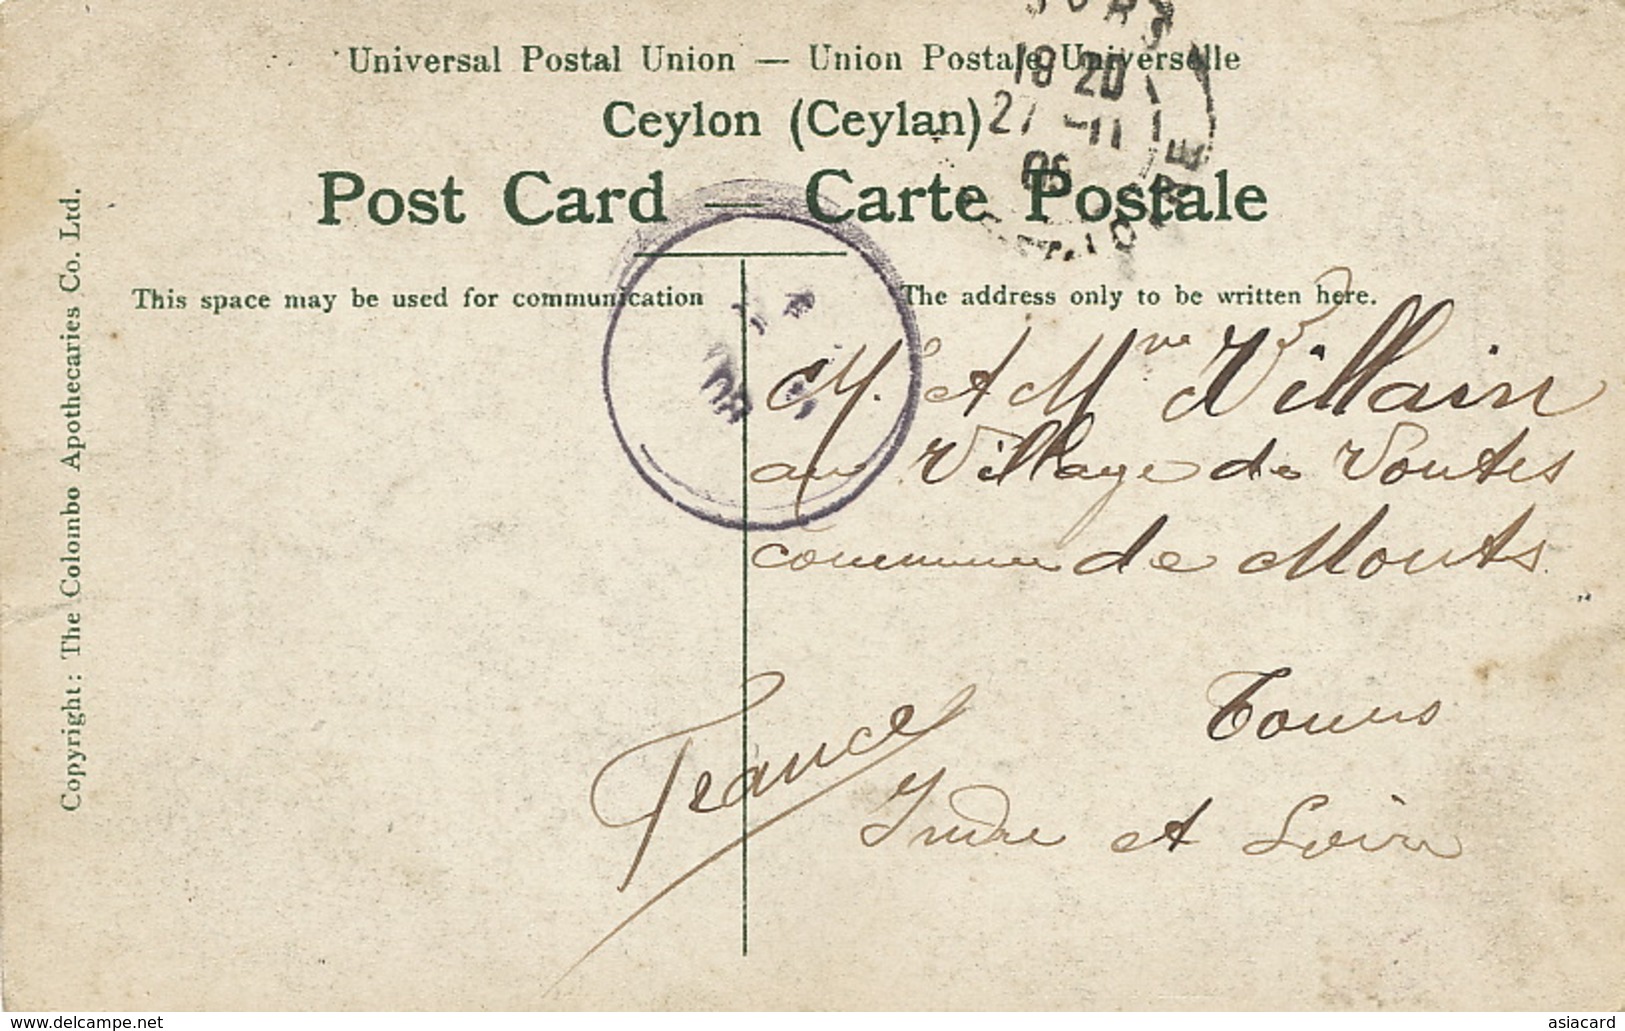 Universal Postal Union — Union Postale Universelle
Ceylon (Ceylan)
Post Card — Carte Postale
This space may be used for communication
The address only to be written here.
Copyright: The Colombo Apothecaries Co. Ltd.
18 20
27 - 11
06
ET-LOIRE
M. et Mme Villain
au Village de Voutes
commune de Monts
Tours
Indre et Loire
France
www.delcampe.net
asiacard